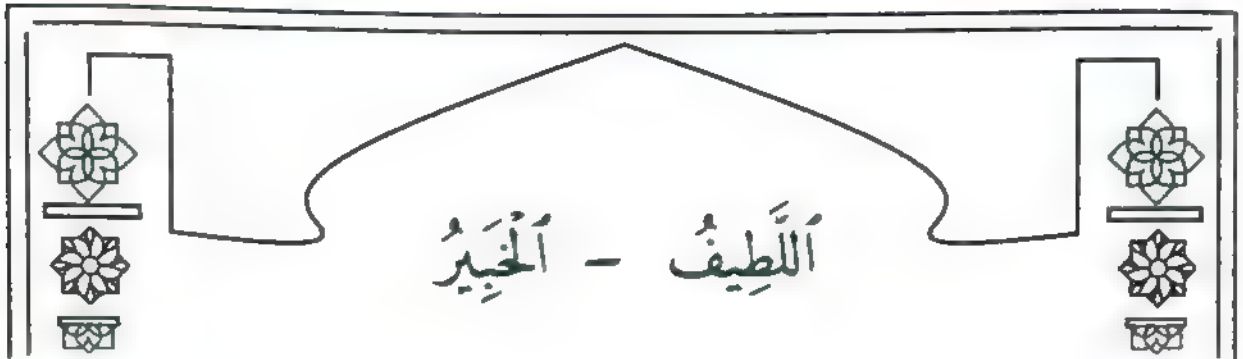 اَللَّطِيفُ - اَلْخَبِيرُ